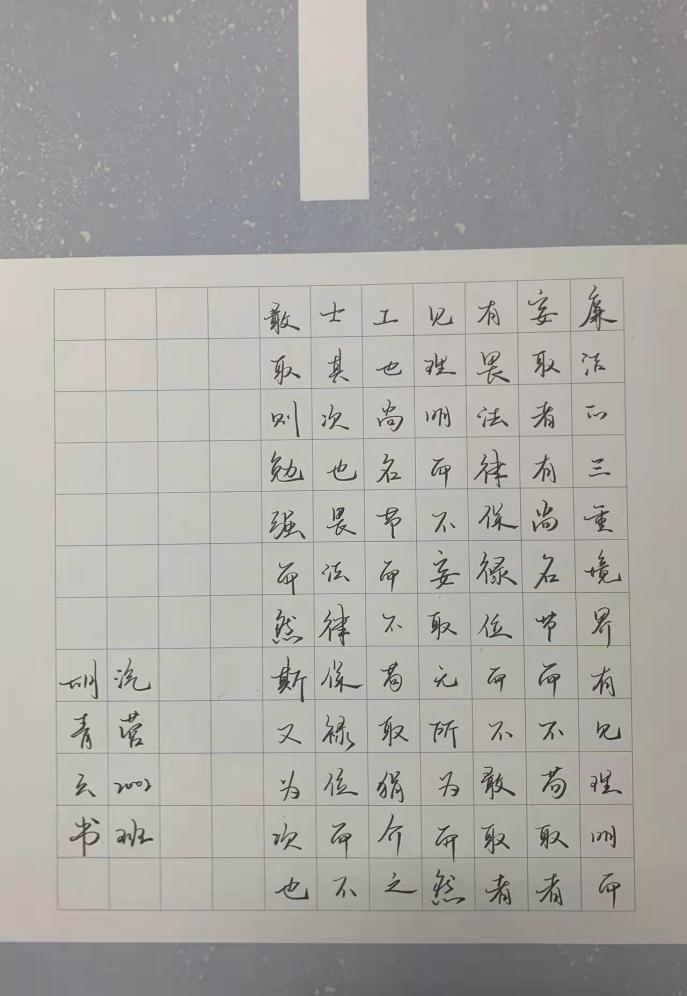 廉洁的三重境界有见理明而
妄取者有尚名节而不苟取者
有畏法律保禄位而不敢取者
见理明而不妄取无所为而然
工也尚名节而不苟取狷介之
士其次也畏法律保禄位而不
敢取则勉强而然斯又为次也
汽营2002班
胡青云书